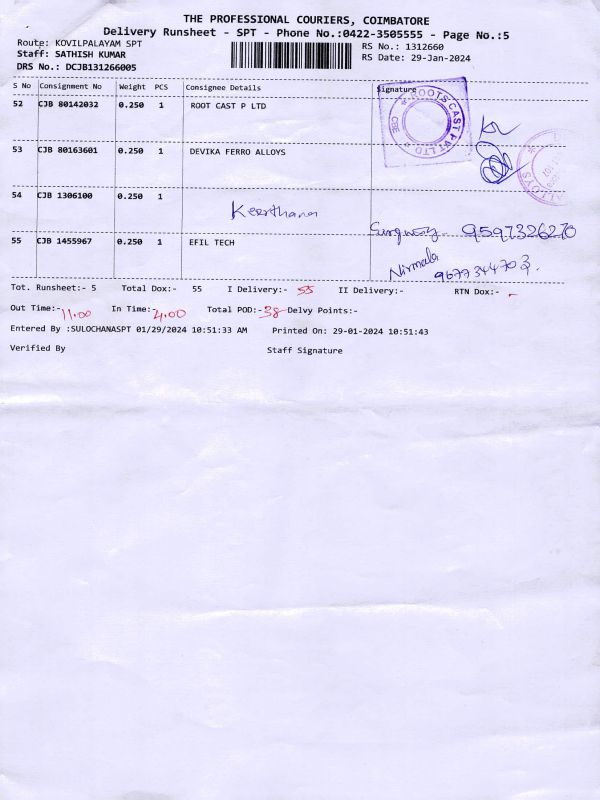 THE PROFESSIONAL COURIERS, COIMBATORE
Delivery Runsheet - SPT - Phone No.:0422-3505555 - Page No.:5
Route: KOVILPALAYAM SPT
Staff: SATHISH KUMAR
DRS No.: DCJB131266005
RS No.: 1312660
RS Date: 29-Jan-2024
S No Consignment No Weight PCS Consignee Details Signature
52 CJB 80142032 0.250 1 ROOT CAST P LTD
ROOTS CAST PVT LTD
CBE
53 CJB 80163601 0.250 1 DEVIKA FERRO ALLOYS
ALLOYS
54 CJB 1306100 0.250 1
Keerthana
9597326270
55 CJB 1455967 0.250 1 EFIL TECH
Nirmala
9677344703.
Tot. Runsheet:- 5 Total Dox:- 55 I Delivery:- 55 II Delivery:- RTN Dox:- -
Out Time:- 11.00 In Time:- 4.00 Total POD:- 38 Delvy Points:-
Entered By :SULOCHANASPT 01/29/2024 10:51:33 AM Printed On: 29-01-2024 10:51:43
Verified By Staff Signature